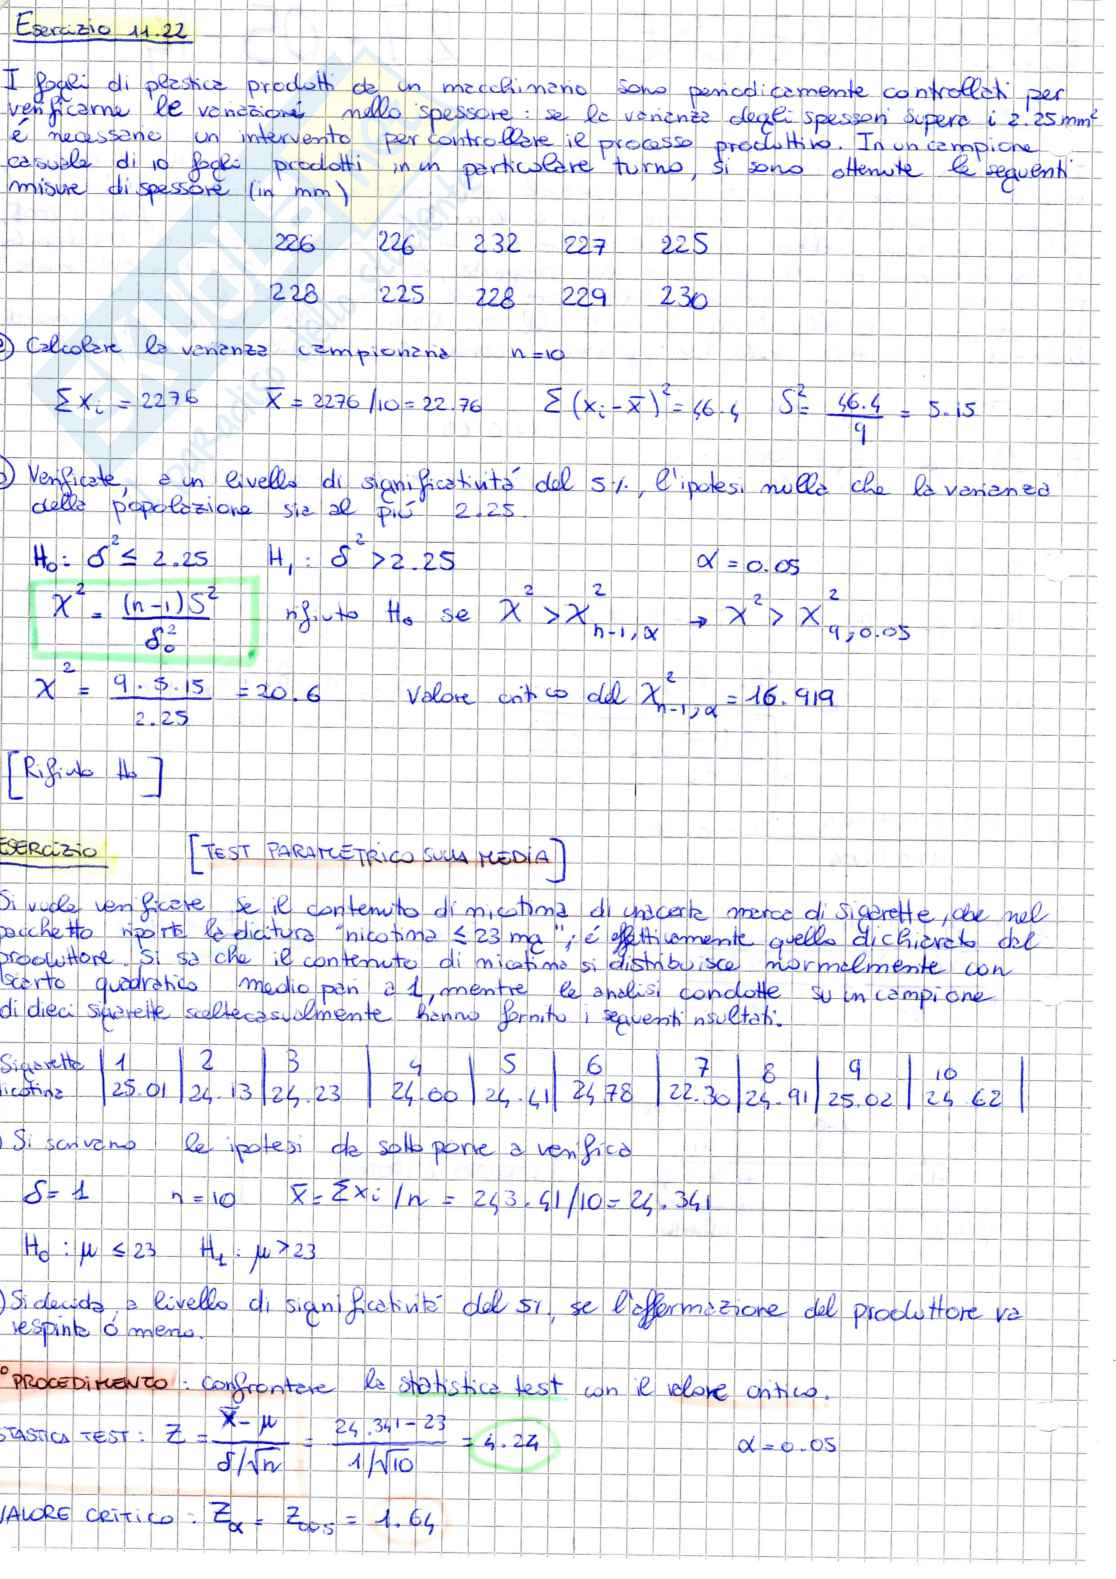 Esercizio 11.22
I fogli di plastica prodotti da un macchinario sono periodicamente controllati per
verificarne le variazioni nello spessore: se la varianza degli spessori supera i 2.25 mm²
é necessario un intervento per controllare il processo produttivo. In un campione
casuale di 10 fogli prodotti in un particolare turno, si sono ottenute le seguenti
misure di spessore (in mm)
226 226 232 227 225
228 225 228 229 230
Calcolare la varianza campionaria n=10
Σxi = 2276 x̄ = 2276/10 = 22.76 Σ(xi-x̄)² = 46.4 S² = 46.4/9 = 5.15
Verificate, a un livello di significatività del 5%, l'ipotesi nulla che la varianza
della popolazione sia al più 2.25.
H₀: δ² ≤ 2.25 H₁: δ² > 2.25 α = 0.05
X² = (n-1)S²/δ₀² rifiuto H₀ se X² > X²n-1,α → X² > X²9,0.05
X² = 9·5.15/2.25 = 20.6 Valore critico del X²n-1,α = 16.919
[Rifiuto H₀]
ESERCIZIO [TEST PARAMETRICO SULLA MEDIA]
Si vuole verificare se il contenuto di nicotina di una certa marca di sigarette, che nel
pacchetto riporta la dicitura "nicotina ≤ 23 mg", é effettivamente quello dichiarato dal
produttore. Si sa che il contenuto di nicotina si distribuisce normalmente con
scarto quadratico medio pari a 1, mentre le analisi condotte su un campione
di dieci sigarette scelte casualmente hanno fornito i seguenti risultati.
Sigarette | 1 | 2 | 3 | 4 | 5 | 6 | 7 | 8 | 9 | 10 |
icotina | 25.01 | 24.13 | 24.23 | 24.00 | 24.41 | 24.78 | 22.30 | 24.91 | 25.02 | 24.62 |
) Si scrivano le ipotesi da sottoporre a verifica
δ = 1 n = 10 x̄ = Σxi/n = 243.41/10 = 24.341
H₀: μ ≤ 23 H₁: μ > 23
) Si decida, a livello di significatività del 5%, se l'affermazione del produttore va
respinta o meno.
° PROCEDIMENTO: confrontare la statistica test con il valore critico.
STASTICA TEST: Z = x̄-μ/δ/√n = 24.341-23/1/√10 = 4.24 α = 0.05
VALORE CRITICO: Zα = Z0.05 = 1.64